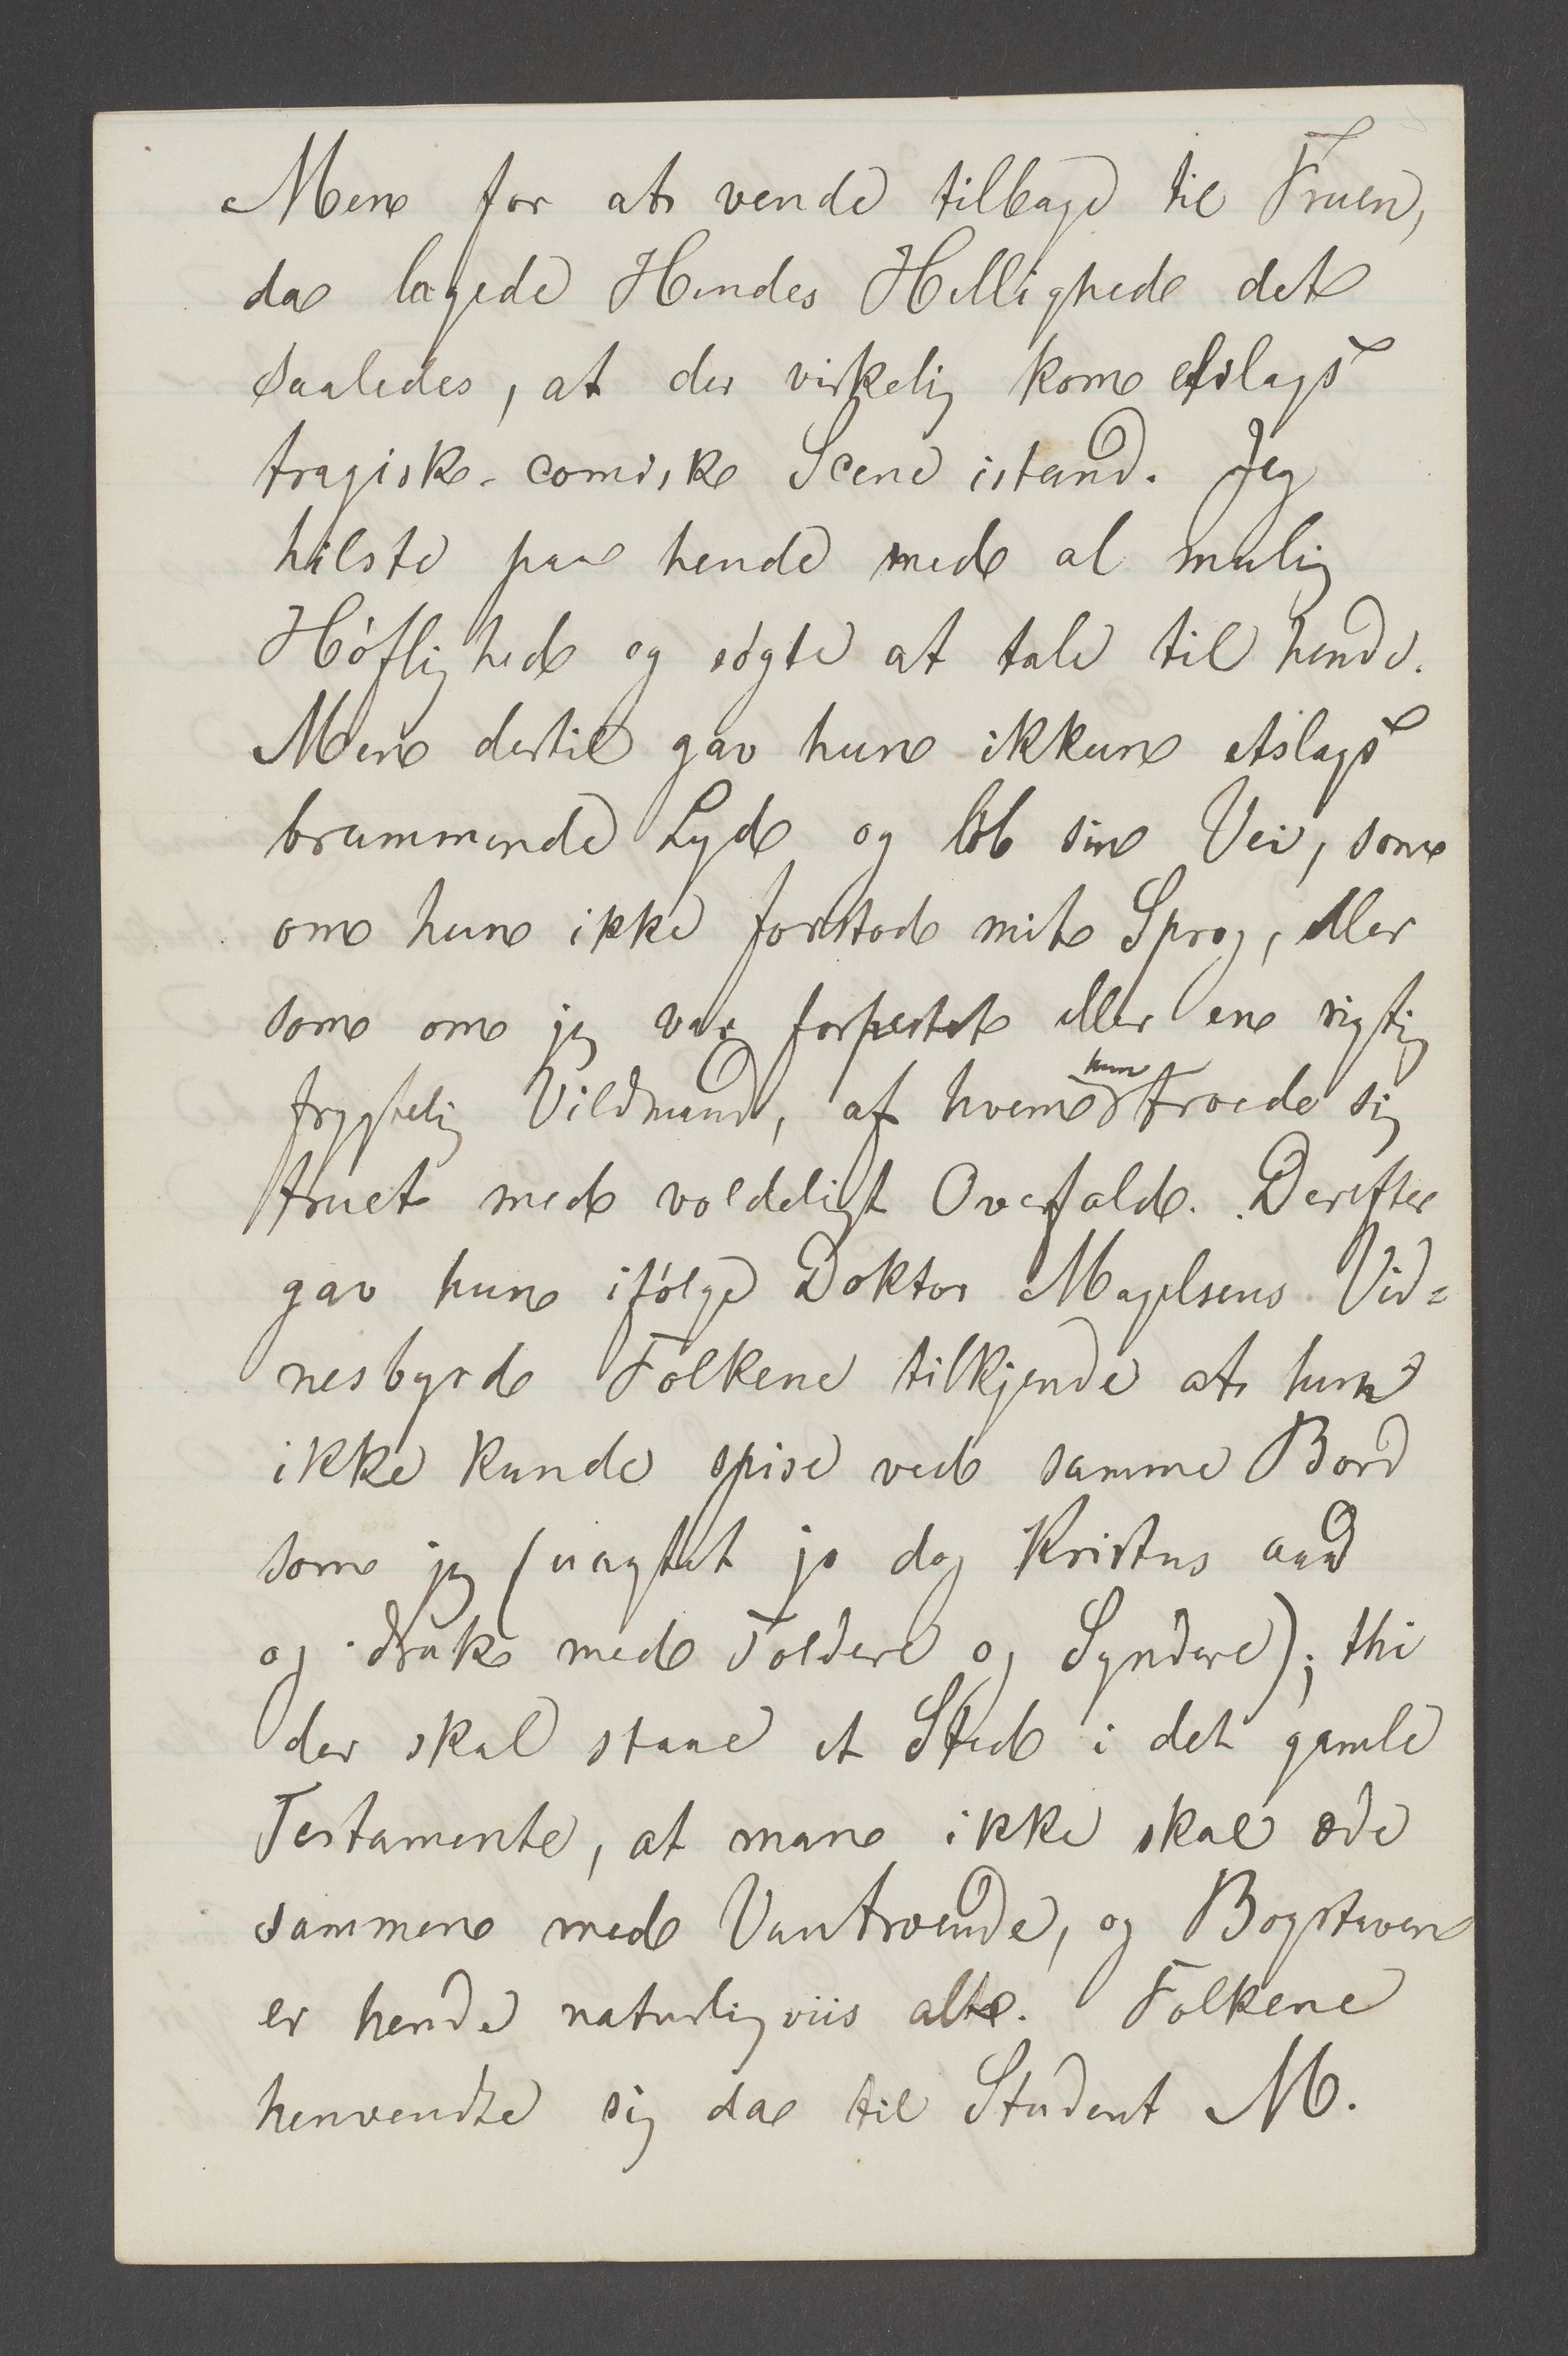 Men for at vende tilbage til Fruen,
da lagede Hendes Hellighed det
saaledes, at der virkelig kom etslags
tragisk-comisk Scene istand. Jeg
hilste paa hende med al mulig
Høflighed og søgte at tale til hende.
Men dertil gav hun ikkun etslags
brummende Lyd og løb sin Vei, som
om hun ikke forstod mit Sprog, eller
som om jeg var forpestet eller en rigtig
frygtelig Vildmand, af hvem hun troede sig
truet med voldeligt Overfald. Derefter
gav hun ifølge Doktor Magelsens Vid=
nesbyrd Folkene tilkjende at hun
ikke kunde spise ved samme Bord
som jeg (uagtet jo dog Kristus aad
og drak med Toldere og Syndere); thi
der skal staae et Sted i det gamle
Testamente, at man ikke skal æde
sammen med Vantroende, og Bogstaven
er hende naturligviis alt. Folkene
henvendte sig da til Student M.